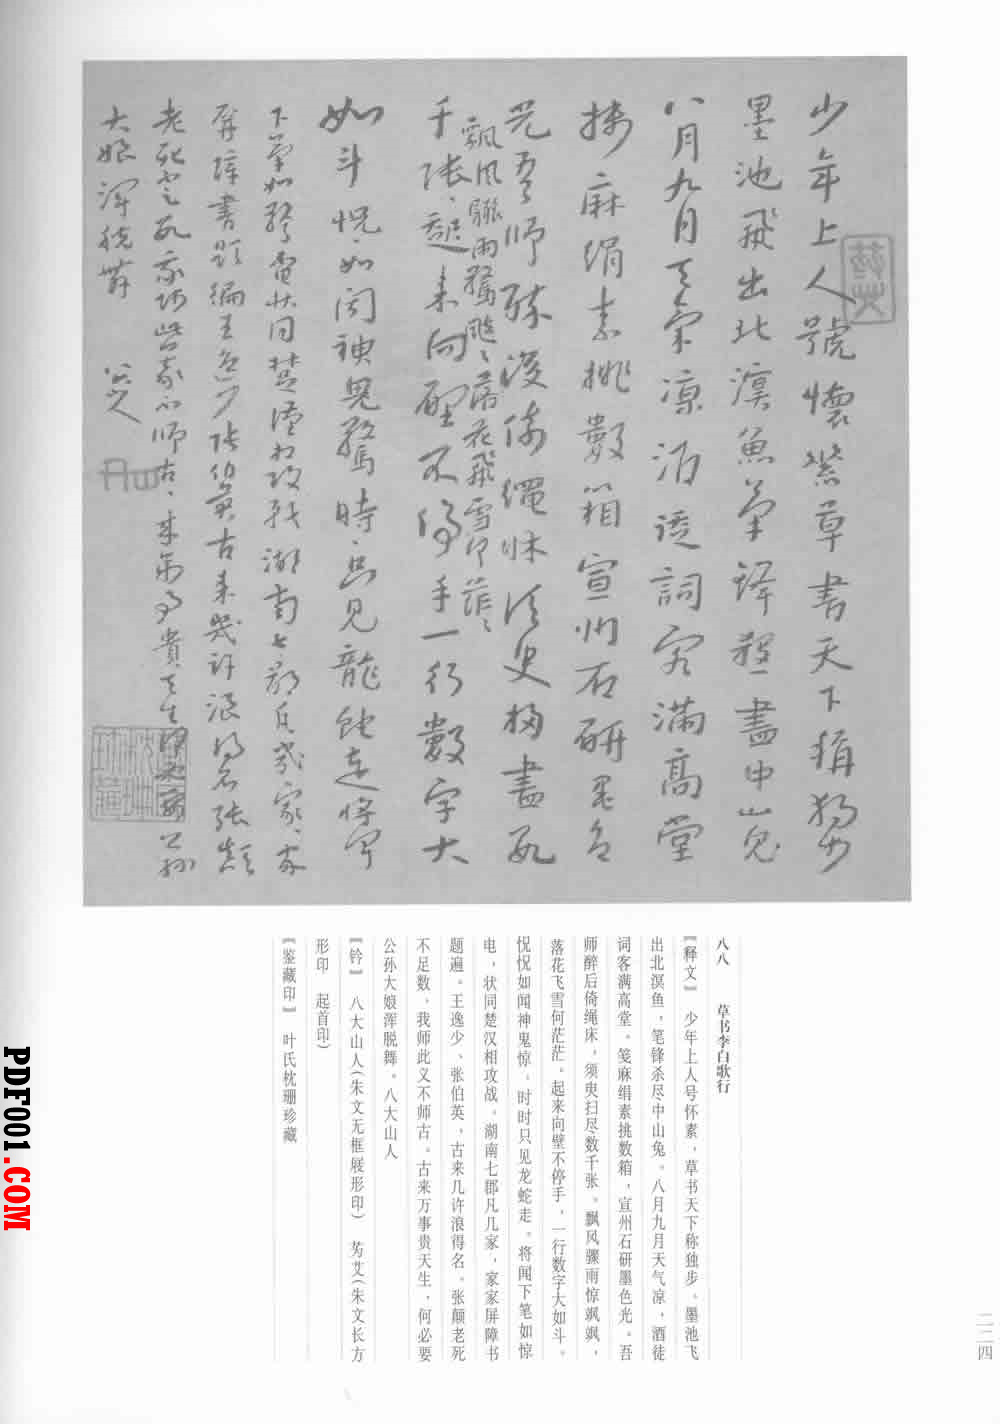 少年上人號懷素草書天下稱獨步
墨池飛出北溟魚筆鋒殺盡中山兔
八月九月天氣涼酒徒詞客滿高堂
牋麻絹素排數箱宣州石研墨色
光吾師醉後倚繩床須臾掃盡數
飄風驟雨驚颯々落花飛雪何茫々
千張起來向壁不停手一行數字大
如斗怳々如聞神鬼驚時々只見龍蛇走將聞
下筆如驚電狀同楚漢相攻戰湖南七郡凡幾家々家
屏障書題遍王逸少張伯英古來幾許浪得名張顛
老死不足數我師此义不師古古來萬事貴天生何必要公孫
大娘渾脫舞
八大山人
八八　草书李白歌行
〖释文〗　少年上人号怀素，草书天下称独步。墨池飞
出北溟鱼，笔锋杀尽中山兔。八月九月天气凉，酒徒
词客满高堂。笺麻绢素挑数箱，宣州石研墨色光。吾
师醉后倚绳床，须臾扫尽数千张。飘风骤雨惊飒飒，
落花飞雪何茫茫。起来向壁不停手，一行数字大如斗。
怳怳如闻神鬼惊，时时只见龙蛇走。将闻下笔如惊
电，状同楚汉相攻战。湖南七郡凡几家，家家屏障书
题遍。王逸少、张伯英，古来几许浪得名。张颠老死
不足数，我师此义不师古。古来万事贵天生，何必要
公孙大娘浑脱舞。八大山人
〖钤〗　八大山人（朱文无框屐形印）　艻艾（朱文长方
形印　起首印）
〖鉴藏印〗　叶氏枕珊珍藏
二二四
PDF001.COM